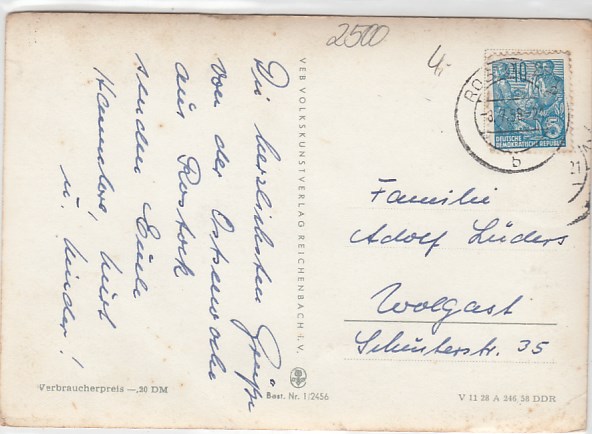 2500
4,-
Die herzlichsten Grüße
von der Ostseewoche
aus Rostock
senden Euch
Hannelore, Kurt
u. Kinder!
VEB VOLKSKUNSTVERLAG REICHENBACH I. V.
10
5
DEUTSCHE
DEMOKRATISCHE REPUBLIK
b
21
Familie
Adolf Lüders
Wolgast
Schusterstr. 35
Verbraucherpreis —,20 DM
Best. Nr. 1/2456
V 11 28 A 246 58 DDR